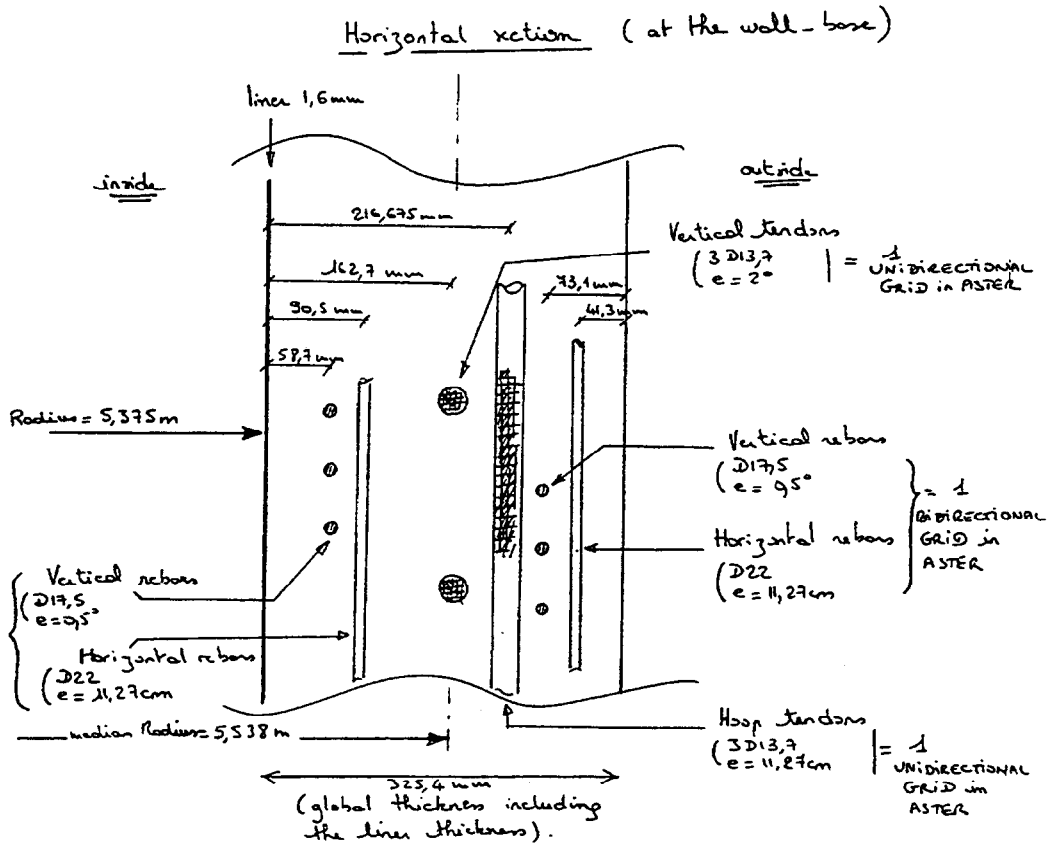 Horizontal section (at the wall-base)
liner 1,6mm
inside
outside
216,675mm
162,7 mm
90,5mm
58,7mm
73,1mm
41,3mm
Vertical tendons
(3D13,7
e = 2°
= 1
UNIDIRECTIONAL
GRiD in ASTER
Radius = 5,375m
Vertical rebars
(D17,5
e = 0,5°
Horizontal rebars
(D22
e = 11,27cm
= 1
BIDIRECTIONAL
GRiD in
ASTER
Vertical rebars
(D17,5
e=0,5°
Horizontal rebars
(D22
e = 11,27cm
median Radius = 5,538m
Hoop tendons
(3D13,7
e = 11,27cm
= 1
UNIDIRECTIONAL
GRiD in
ASTER
325,4 mm
(global thickness including
the liner thickness).